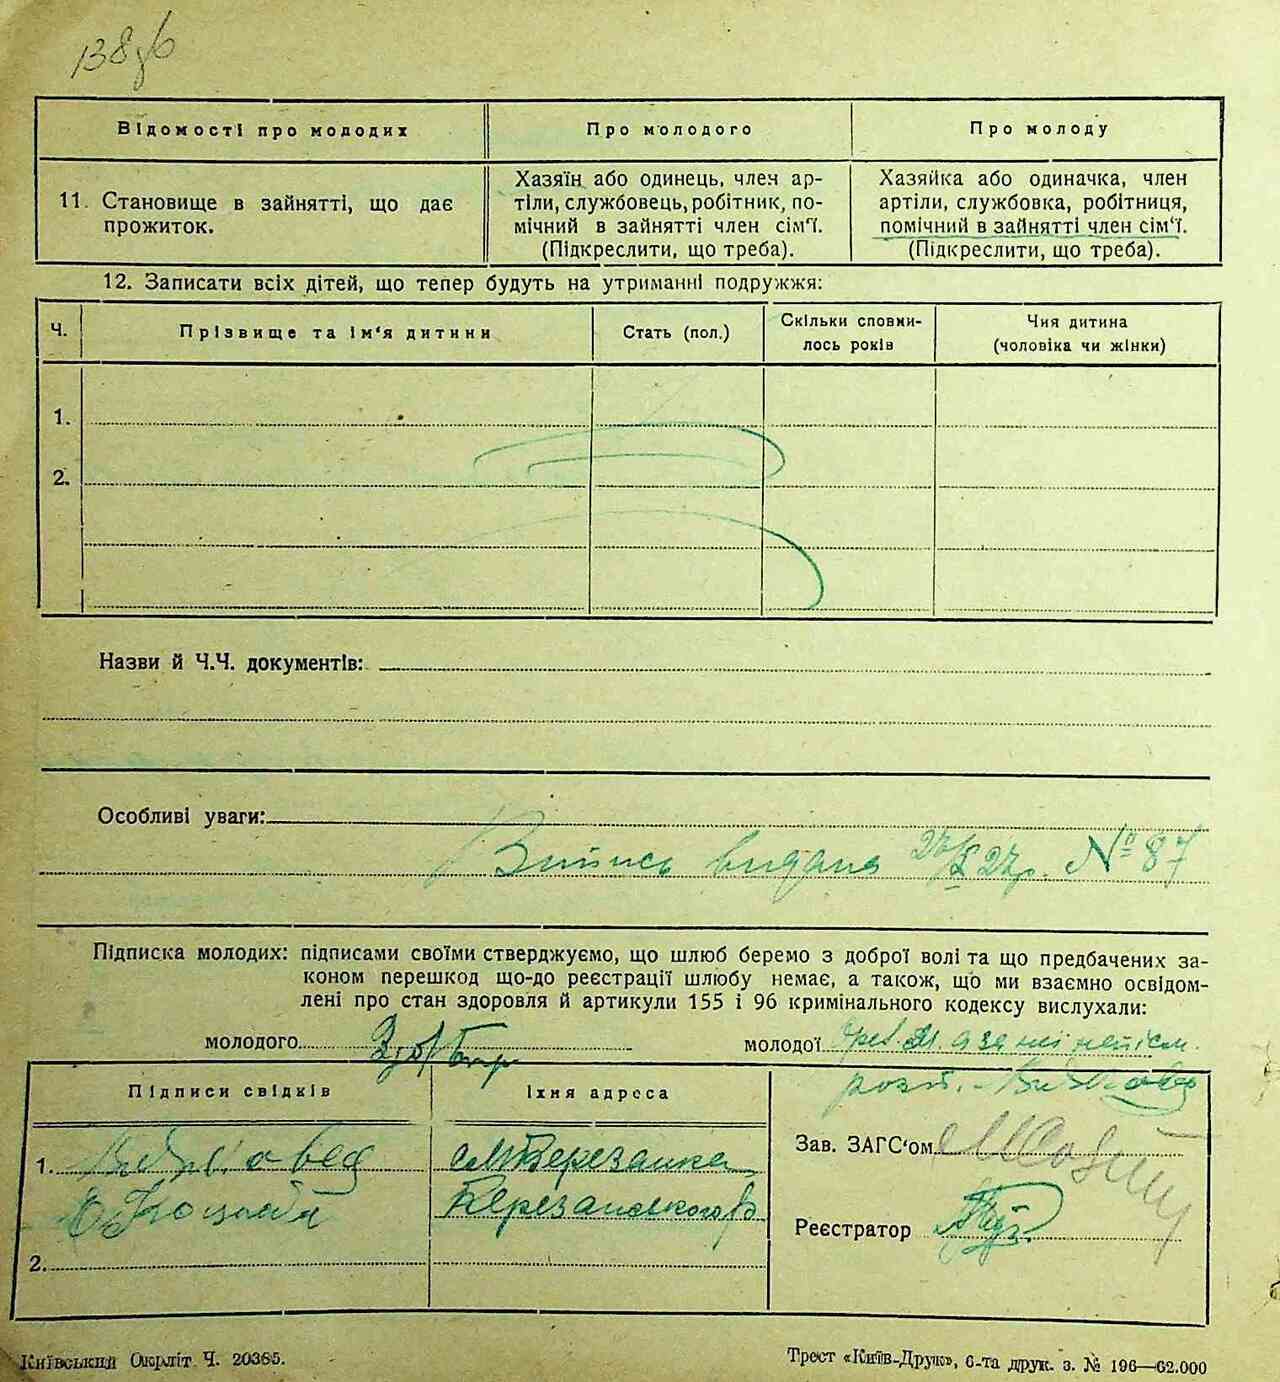 138
Відомості про молодих
Про молодого
Про молоду
11. Становище в зайнятті, що дає
прожиток.
Хазяїн або одинець, член ар-
тіли, службовець, робітник, по-
мічний в зайнятті член сім'ї.
(Підкреслити, що треба).
Хазяйка або одиначка, член
артіли, службовка, робітниця,
помічний в зайнятті член сім'ї.
(Підкреслити, що треба).
12. Записати всіх дітей, що тепер будуть на утриманні подружжя:
Ч.
Прізвище та ім'я дитини
Стать (пол.)
Скільки сповни-
лось років
Чия дитина
(чоловіка чи жінки)
1.
2.
Назви й Ч.Ч. документів:
Особливі уваги:
Випись видана 27/X 27р. № 87
Підписка молодих: підписами своїми стверджуємо, що шлюб беремо з доброї волі та що предбачених за-
коном перешкод що-до реєстрації шлюбу немає, а також, що ми взаємно освідом-
лені про стан здоровля й артикули 155 і 96 кримінального кодексу вислухали:
молодого
молодої
Підписи свідків
Їхня адреса
1.
м Березанка
Березанського р
2.
Зав. ЗАГС'ом
Реєстратор
Київський Окрліт Ч. 20365.
Трест «Київ-Друк», 6-та друк. з. № 196—62.000